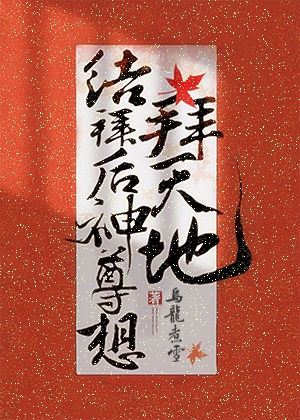 结拜后神尊想
拜天地
乌龍煮雪
著